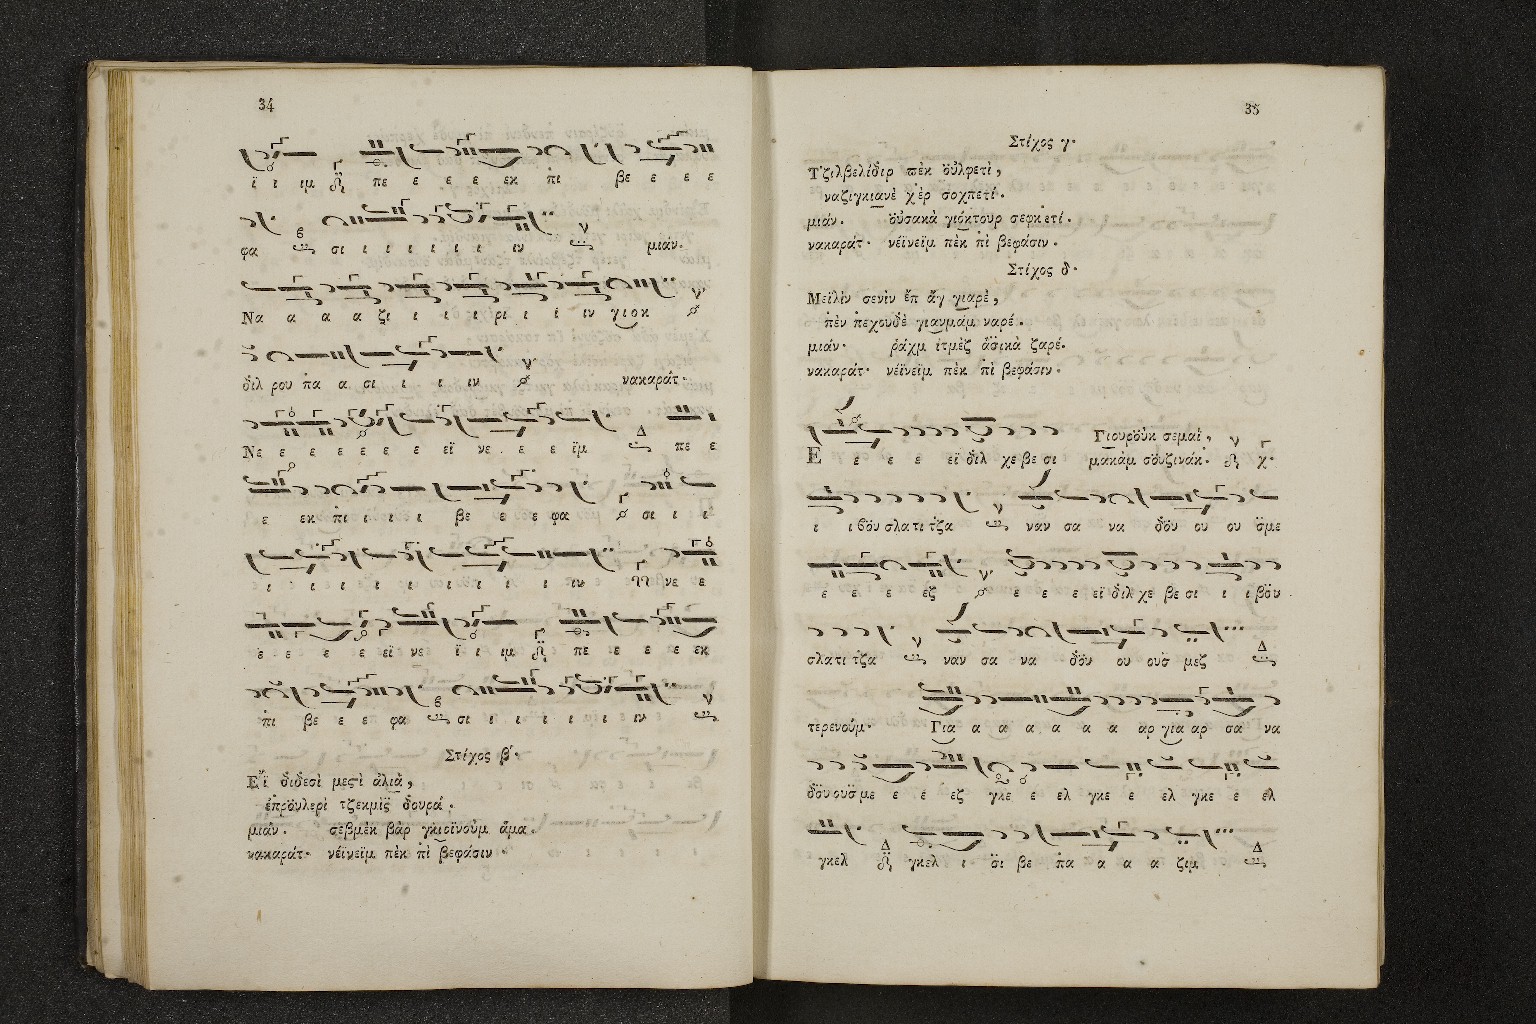 34
ϊ ι ιμ πε ε ε ε εκ πὶ βε ε ε ε
φα σι ι ι ι ι ι ι ιν μιάν.
Να α α α ζι ι ι ι ρι ι ι ιν γιοκ
δὶλ ρου πα α σι ι ι ι ιν νακαράτ.
Νε ε ε ε ε ε ε εϊ νε ε ε ϊμ πε ε
ε εκ πὶ ι ι ι βε ε ε φα σι ι ι
ι ι ι ι ι ι ι ι ι ιν νε ε
ε ε ε ε εϊ νε ϊ ι ιμ πε ε ε ε εκ
πὶ βε ε ε φα σι ι ι ι ι ι ιν
Στίχος β΄.
Εἴ διδεσὶ μεςὶ ἀλιὰ,
ἐπρὸυλερὶ τζεκμὶς δουρά.
μιάν. σεβμὲκ βὰρ γκιοϊνοὺμ ἄμα.
νακαράτ. νέϊνεϊμ πὲκ πὶ βεφάσιν.
35
Στίχος γ.
Τζιλβελίδιρ πὲκ ὅϋλφετὶ,
ναζιγκιανὲ χὲρ σοχπετί.
μιάν. ὅϋσακὰ γιόκτουρ σεφκετί.
νακαράτ. νέϊνεϊμ πὲκ πὶ βεφάσιν.
Στίχος δ.
Μεϊλὶν σενὶν ἔπ ἄγ γιαρὲ,
πὲν πεχουδὲ γιανμάμ ναρέ.
μιάν. ῥάχμ ἰτμὲζ ἄσικὰ ζαρέ.
νακαράτ. νέϊνεϊμ πὲκ πὶ βεφάσιν.
Γιουροὺκ σεμαΐ,
Ε ε ε ε εϊ δὶλ χε βε σι μακὰμ σὅυζινάκ. χ.
ι ι βόυ σλα τι τζα ναν σα να δόυ ου ου σμε
ε ε ε εζ ε ε ε εϊ δὶλ χε βε σι ι ι βόυ
σλα τι τζα ναν σα να δόυ ου ους μεζ
τερενούμ. Για α α α α α α αρ για αρ σα να
δόυ ους με ε ε εζ γκε ε ελ γκε ε ελ γκε ε ελ
γκελ γκελ ι σι βε πα α α α ζιμ